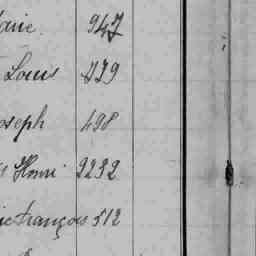 arie 947
Louis 239
oseph 498
s Henri 2232
ie françois 512